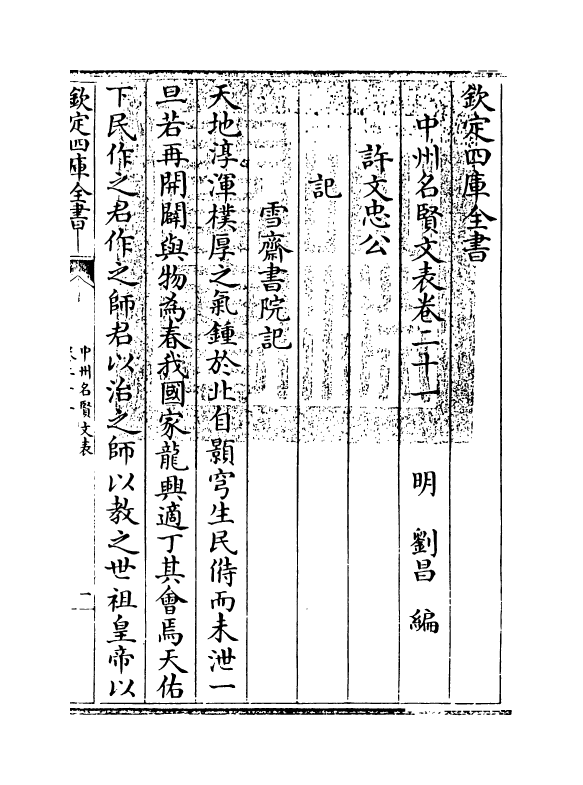 欽定四庫全書
中州名賢文表卷二十一　明　劉昌　編
許文忠公
記
雪齋書院記
天地淳渾樸厚之氣鍾於北自顥穹生民偫而未泄一
旦若再開闢與物為春我國家龍興適丁其會焉天佑
下民作之君作之師君以治之師以教之世祖皇帝以
欽定四庫全書
中州名賢文表
一